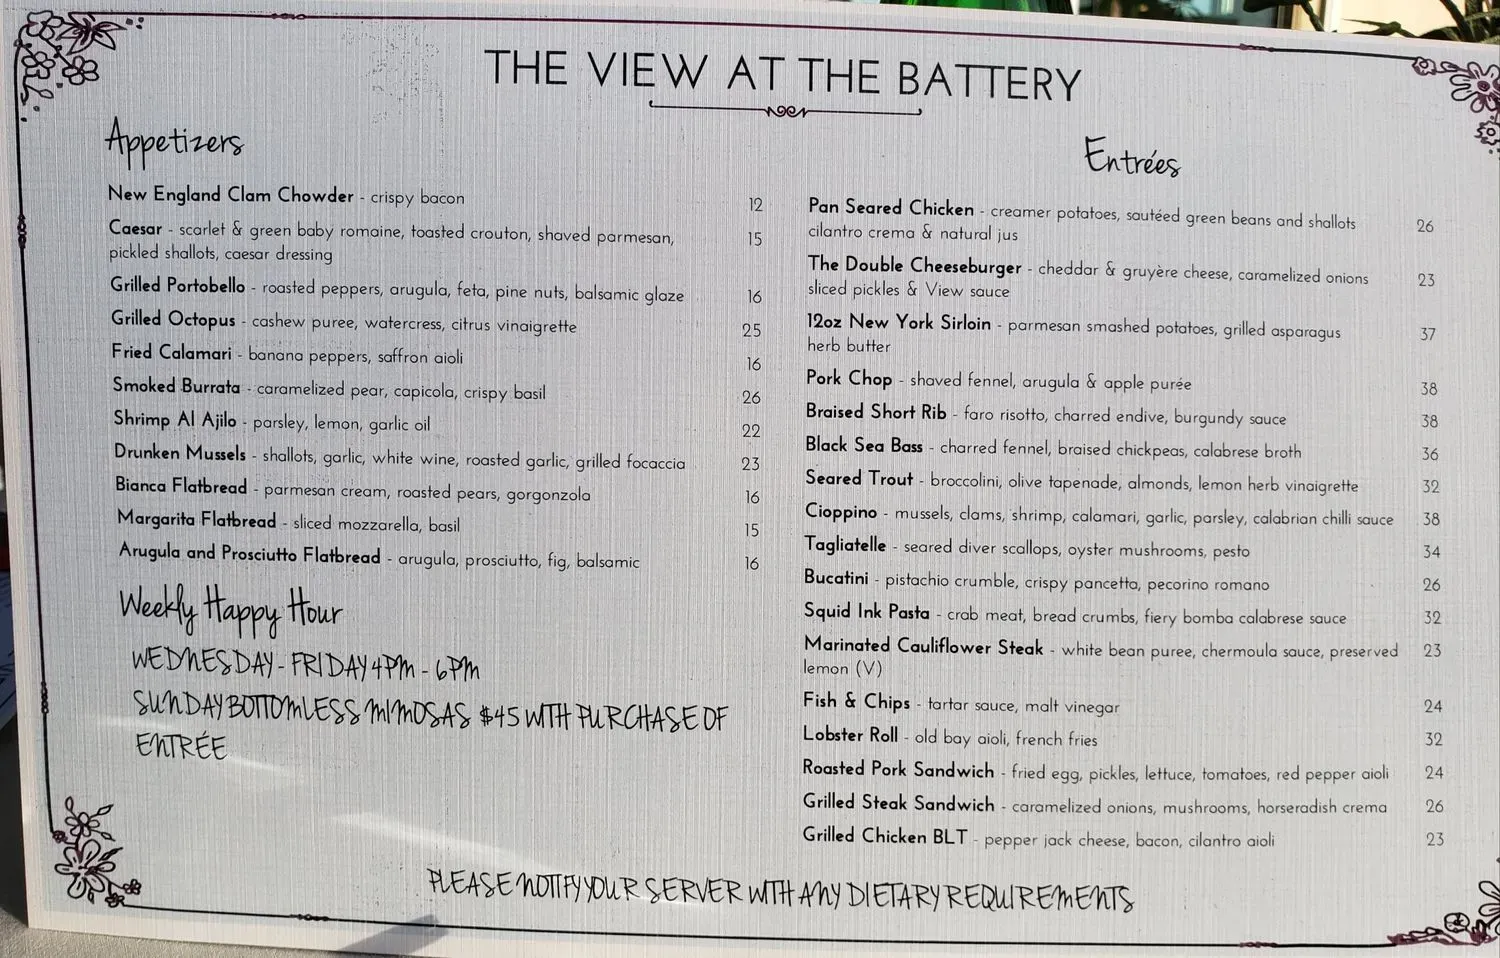 THE VIEW AT THE BATTERY
Appetizers
New England Clam Chowder - crispy bacon 12
Caesar - scarlet & green baby romaine, toasted crouton, shaved parmesan, 15
pickled shallots, caesar dressing
Grilled Portobello - roasted peppers, arugula, feta, pine nuts, balsamic glaze 16
Grilled Octopus - cashew puree, watercress, citrus vinaigrette 25
Fried Calamari - banana peppers, saffron aioli 16
Smoked Burrata - caramelized pear, capicola, crispy basil 26
Shrimp Al Ajilo - parsley, lemon, garlic oil 22
Drunken Mussels - shallots, garlic, white wine, roasted garlic, grilled focaccia 23
Bianca Flatbread - parmesan cream, roasted pears, gorgonzola 16
Margarita Flatbread - sliced mozzarella, basil 15
Arugula and Prosciutto Flatbread - arugula, prosciutto, fig, balsamic 16
Weekly Happy Hour
WEDNESDAY - FRIDAY 4PM - 6PM
SUNDAY BOTTOMLESS MIMOSAS $45 WITH PURCHASE OF
ENTRÉE
Entrées
Pan Seared Chicken - creamer potatoes, sautéed green beans and shallots 26
cilantro crema & natural jus
The Double Cheeseburger - cheddar & gruyère cheese, caramelized onions 23
sliced pickles & View sauce
12oz New York Sirloin - parmesan smashed potatoes, grilled asparagus 37
herb butter
Pork Chop - shaved fennel, arugula & apple purée 38
Braised Short Rib - faro risotto, charred endive, burgundy sauce 38
Black Sea Bass - charred fennel, braised chickpeas, calabrese broth 36
Seared Trout - broccolini, olive tapenade, almonds, lemon herb vinaigrette 32
Cioppino - mussels, clams, shrimp, calamari, garlic, parsley, calabrian chilli sauce 38
Tagliatelle - seared diver scallops, oyster mushrooms, pesto 34
Bucatini - pistachio crumble, crispy pancetta, pecorino romano 26
Squid Ink Pasta - crab meat, bread crumbs, fiery bomba calabrese sauce 32
Marinated Cauliflower Steak - white bean puree, chermoula sauce, preserved 23
lemon (V)
Fish & Chips - tartar sauce, malt vinegar 24
Lobster Roll - old bay aioli, french fries 32
Roasted Pork Sandwich - fried egg, pickles, lettuce, tomatoes, red pepper aioli 24
Grilled Steak Sandwich - caramelized onions, mushrooms, horseradish crema 26
Grilled Chicken BLT - pepper jack cheese, bacon, cilantro aioli 23
PLEASE NOTIFY YOUR SERVER WITH ANY DIETARY REQUIREMENTS